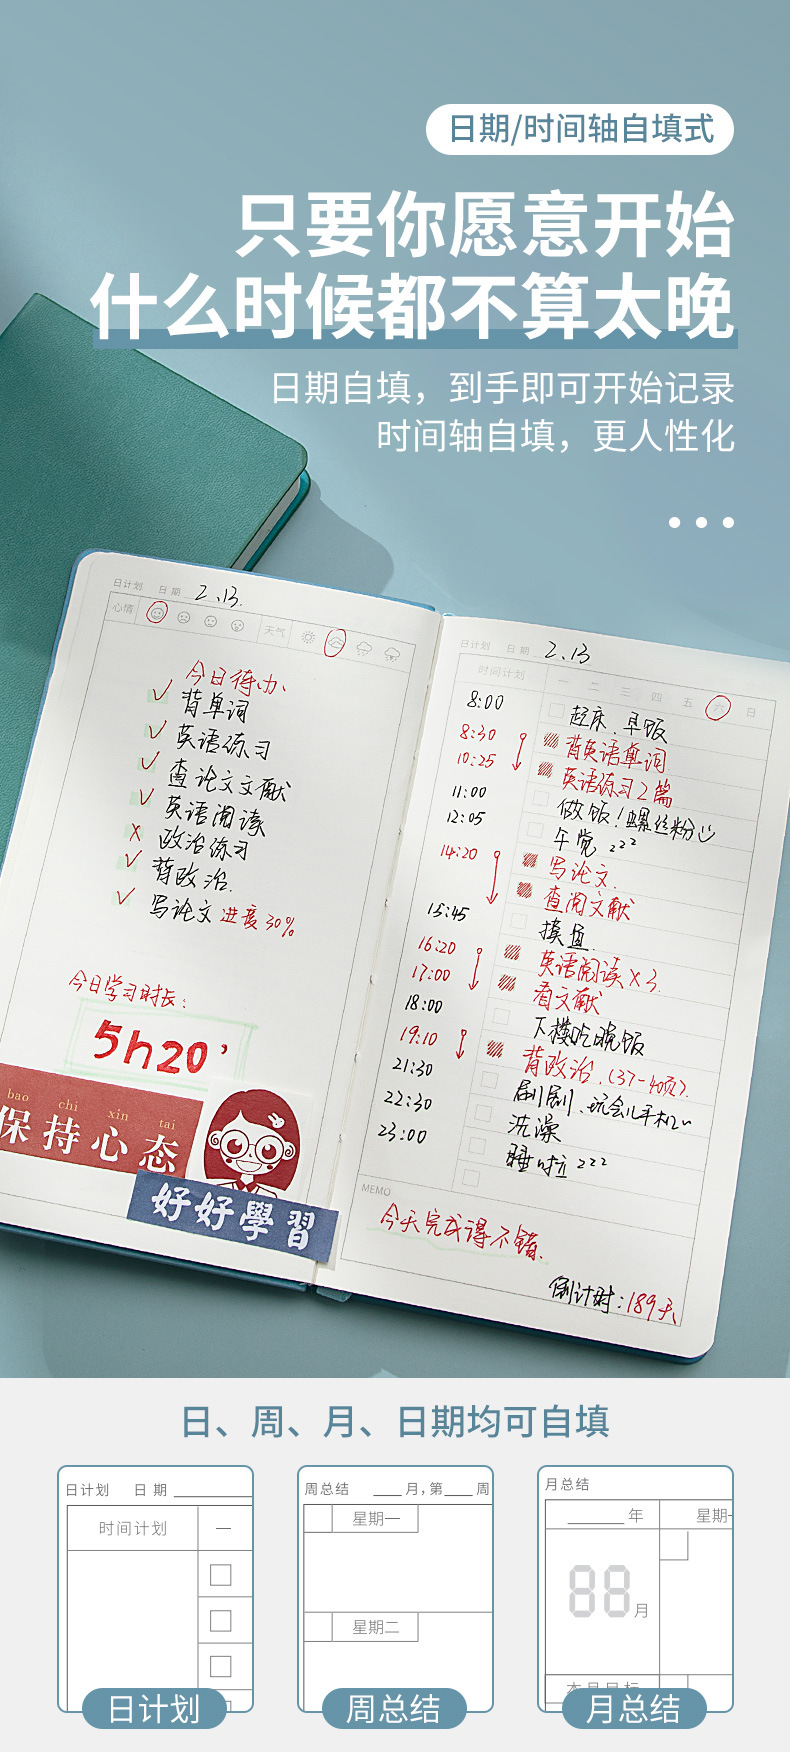 日期/时间轴自填式
只要你愿意开始
什么时候都不算太晚
日期自填，到手即可开始记录
时间轴自填，更人性化
日计划 日期 2.13.
心情 天气
今日待办
背单词
英语练习
查论文文献
英语阅读
政治练习
背政治.
写论文 进度30%
今日学习时长:
5h20'
bao chi xin tai
保持心态
好好學習
日计划 日期 2.13
时间计划 一 二 三 四 五 六 日
8:00 起床.早饭
8:30 背英语单词
10:25 英语练习2篇
11:00 做饭!螺丝粉
12:05 午觉 zzz
14:20 写论文.
查阅文献
15:45 摸鱼.
16:20 英语阅读×3.
17:00 看文献
18:00 下楼吃晚饭
19:10 背政治.(37-40页).
21:30 刷剧.玩会儿手机~
22:30 洗澡
23:00 睡啦 zzz
MEMO
今天完成得不错.
倒计时:189天
日、周、月、日期均可自填
日计划 日期
时间计划 一
日计划
周总结 月,第 周
星期一
星期二
周总结
月总结
年 星期一
88月
本月目标
月总结